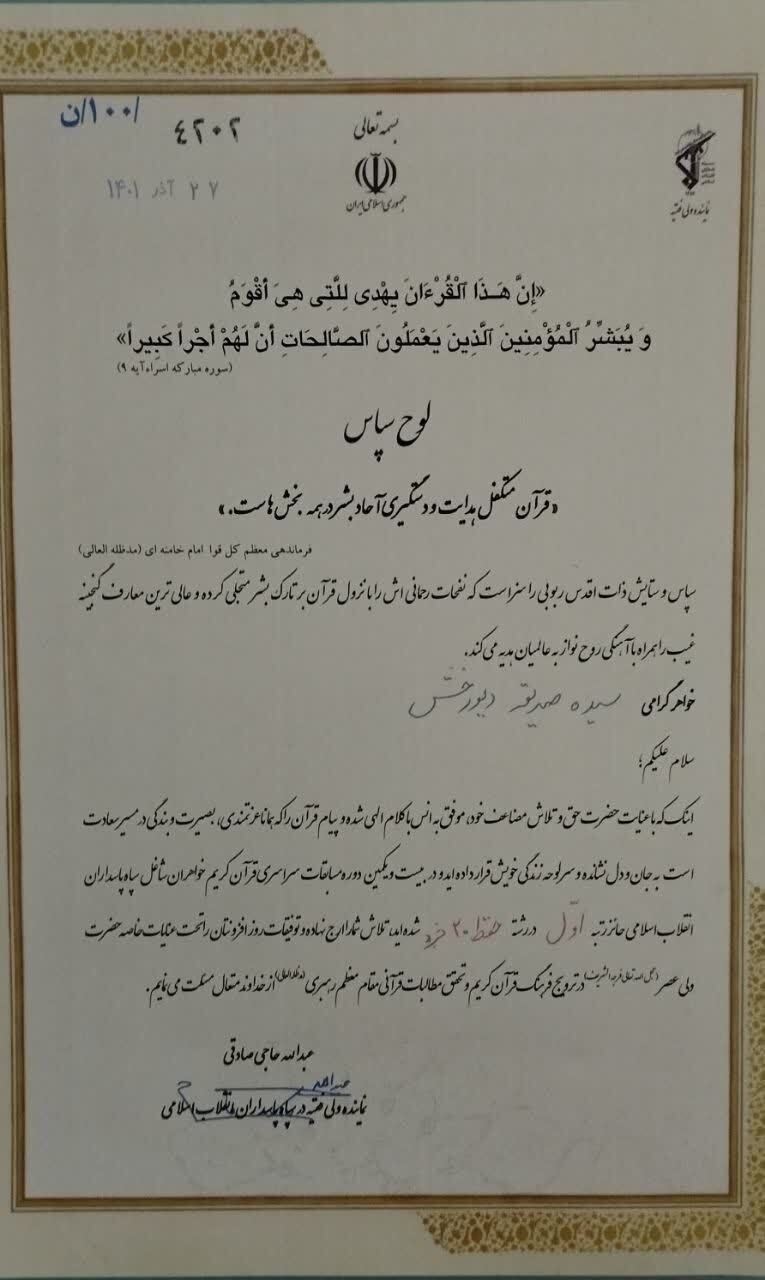 بسمه تعالی
جمهوری اسلامی ایران
نماینده ولی فقیه
۴۲۰۲ /۱۰۰/ن
۲۷ آذر ۱۴۰۱
«إِنَّ هَـذَا ٱلْقُرْءَانَ يِهْدِى لِلَّتِى هِىَ أَقْوَمُ
وَ يُبَشِّرُ ٱلْمُؤْمِنِينَ ٱلَّذِينَ يَعْمَلُونَ ٱلصَّالِحَاتِ أَنَّ لَهُمْ أَجْراً كَبِيراً»
(سوره مبارکه اسراء آیه ۹)
لوح سپاس
«قرآن متکفل هدایت و دستگیری آحاد بشر در همه بخش هاست.»
فرماندهی معظم کل قوا امام خامنه ای (مدظله العالی)
سپاس و ستایش ذات اقدس ربوبی را سزاست که نفحات رحمانی اش را با نزول قرآن بر تارک بشر متجلی کرده و عالی ترین معارف گنجینه
غیب را همراه با آهنگی روح نواز به عالمیان هدیه می کند.
خواهر گرامی سیده صدیقه دیورخش
سلام علیکم؛
اینک که با عنایت حضرت حق و تلاش مضاعف خود، موفق به انس با کلام الهی شده و پیام قرآن را که همانا عزتمندی، بصیرت و بندگی در مسیر سعادت
است به جان و دل نشانده و سرلوحه زندگی خویش قرار داده اید و در بیست و یکمین دوره مسابقات سراسری قرآن کریم خواهران شاغل سپاه پاسداران
انقلاب اسلامی حائز رتبه اوّل در رشته حفظ ۲۰ جزء شده اید، تلاش شما را ارج نهاده و توفیقات روز افزونتان را تحت عنایات خاصه حضرت
ولی عصر (عجل الله تعالی فرجه الشریف) در ترویج فرهنگ قرآن کریم و تحقق مطالبات قرآنی مقام معظم رهبری (مدظله العالی) از خداوند متعال مسئلت می نمایم.
عبدالله حاجی صادقی
نماینده ولی فقیه در سپاه پاسداران انقلاب اسلامی